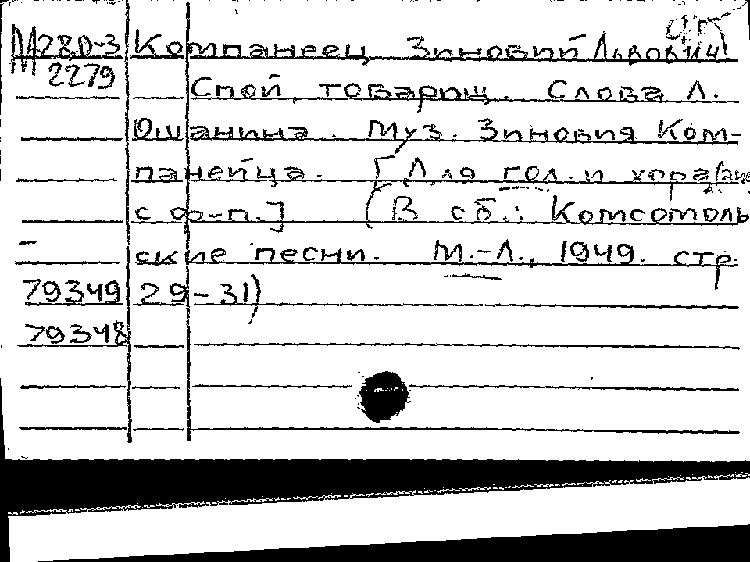 ЦК
М280-3 Компанеец Зиновий Львович
2279 Спой, товарищ. Слова Л.
Ошанина. Муз. Зиновия Ком-
панейца. [Для гол. и хора
с ф-п.] (В сб.: Комсомоль
- ские песни. М.-Л., 1949. стр.
79349 29-31)
79348